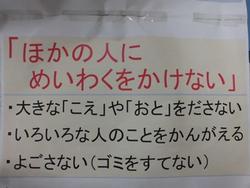 「ほかの人に
めいわくをかけない」
・大きな「こえ」や「おと」をださない
・いろいろな人のことをかんがえる
・よごさない(ゴミをすてない)